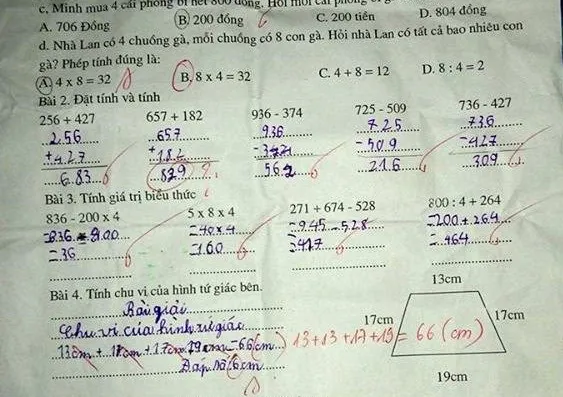 c, Minh mua 4 cái phong bì hết 800 đồng. Hỏi mỗi cái phong bì
A. 706 Đồng B. 200 đồng C. 200 tiền D. 804 đồng
d. Nhà Lan có 4 chuồng gà, mỗi chuồng có 8 con gà. Hỏi nhà Lan có tất cả bao nhiêu con
gà? Phép tính đúng là:
A. 4 x 8 = 32 B. 8 x 4 = 32 C. 4 + 8 = 12 D. 8 : 4 = 2
Bài 2. Đặt tính và tính
256 + 427 657 + 182 936 - 374 725 - 509 736 - 427
256 657 936 725 736
+427 +182 -374 -509 -427
683 839 562 216 309
Bài 3. Tính giá trị biểu thức
836 - 200 x 4 5 x 8 x 4 271 + 674 - 528 800 : 4 + 264
=836 - 800 =40 x 4 =945 - 528 =200 + 264
=36 =160 =417 =464
Bài 4. Tính chu vi của hình tứ giác bên.
13cm
Bài giải
Chu vi của hình tứ giác
17cm 17cm
13cm + 17cm + 17cm 19cm = 66(cm) 13 + 13 + 17 + 19 = 66 (cm)
Đáp số 6cm
19cm